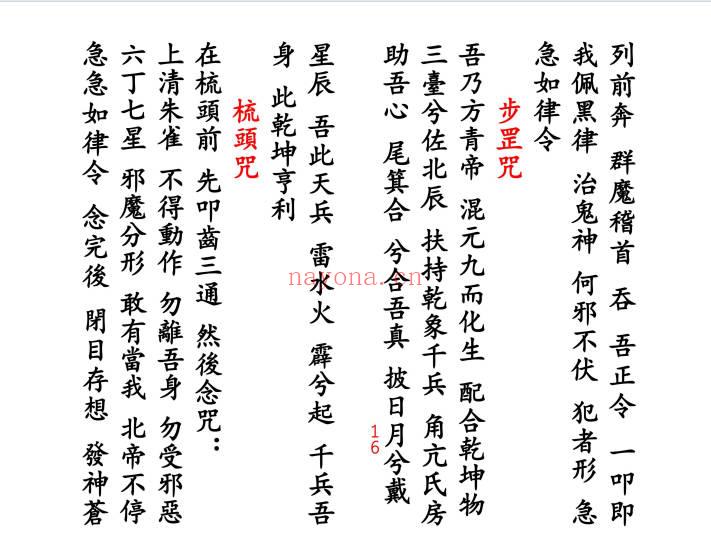 列前奔 群魔稽首 吞 吾正令 一叩即
我佩黑律 治鬼神 何邪不伏 犯者形 急
急如律令
步罡咒
吾乃方青帝 混元九而化生 配合乾坤物
三臺兮佐北辰 扶持乾象千兵 角亢氐房
助吾心 尾箕合 兮合吾真 披日月兮戴
16
星辰 吾此天兵 雷水火 霹兮起 千兵吾
身 此乾坤亨利
梳頭咒
在梳頭前 先叩齒三通 然後念咒：
上清朱雀 不得動作 勿離吾身 勿受邪惡
六丁七星 邪魔分形 敢有當我 北帝不停
急急如律令 念完後 閉目存想 發神蒼
nayona.cn